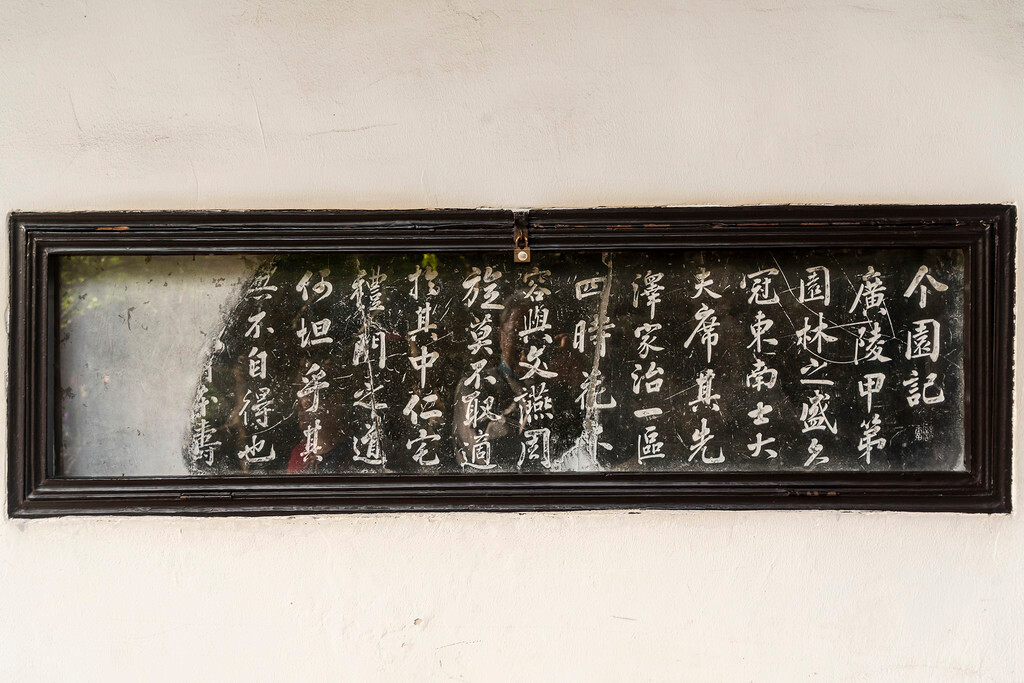 个園記
廣陵甲第
園林之盛名
冠東南士大
夫席其先
澤家治一區
四時花木
容與文燕周
旋莫不取適
於其中仁宅
禮門之道
何坦乎其
無不自得也
壽